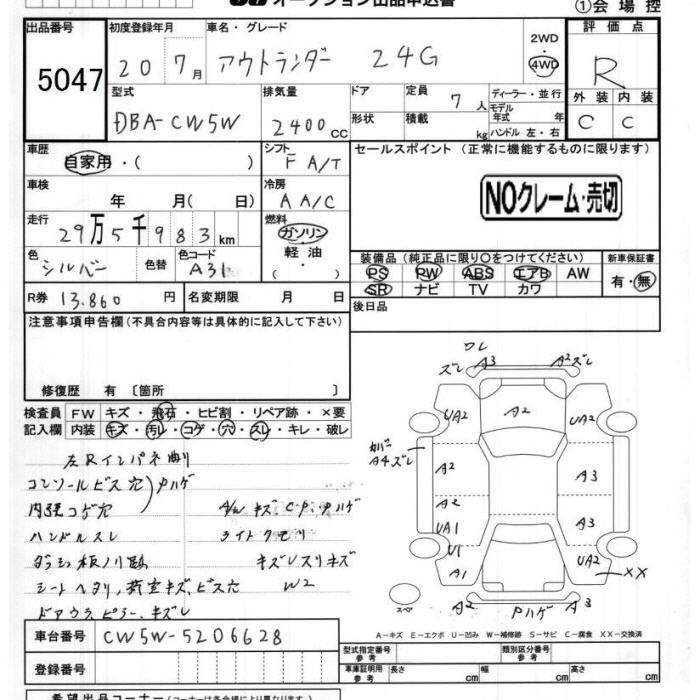 オークション出品申込書
①会場控
出品番号 5047
初度登録年月 20 7月
車名・グレード アウトランダー 24G
2WD・4WD
評価点 R
外装 C 内装 C
型式 DBA-CW5W
排気量 2400 CC
ドア形状
定員 7人
積載 kg
ディーラー・並行
モデル年式 年
ハンドル 左・右
車歴 自家用・( )
シフト F A/T
セールスポイント (正常に機能するものに限ります)
NOクレーム・売切
車検 年 月( 日)
冷房 A A/C
走行 29万5千983km
燃料 ガソリン・軽油・( )
色 シルバー 色替 色コード A31
装備品 (純正品に限り○をつけてください)
PS PW ABS エアB AW
SR ナビ TV カワ
新車保証書 有・無
R券 13.860円 名変期限 月 日
後日品
注意事項申告欄 (不具合内容等は具体的に記入して下さい)
修復歴 有 〔箇所 〕
検査員記入欄
FW キズ・飛石・ヒビ割・リペア跡・×要
内装 キズ・汚レ・コゲ・穴・スレ・キレ・破レ
左Rインパネ曲り
コンソールビス穴
内張コゲ穴
Pハゲ
A/W キズ、CP、Pハゲ
ハンドルスレ
ライトクモリ
キズレスリキズ
W2
シートヘタリ、荷室キズ、ビス穴
ドアウラ、ピラー、キズレ
ワレ
ズレ A3 A2ズレ
UA2 A2 UA2
カバー A4ズレ
A2 A3
A2 A3
UA1
U1 A1 UA2 XX
スペア
A2 Pハゲ A3
A-キズ E-エクボ U-凹み W-補修跡 S-サビ C-腐食 XX-交換済
車台番号 CW5W-5206628
登録番号
型式指定番号 参考
類別区分番号 参考
車庫証明用 参考 長さ cm 幅 cm 高さ cm
希望出品コーナー (コーナーは各会場により異なります)